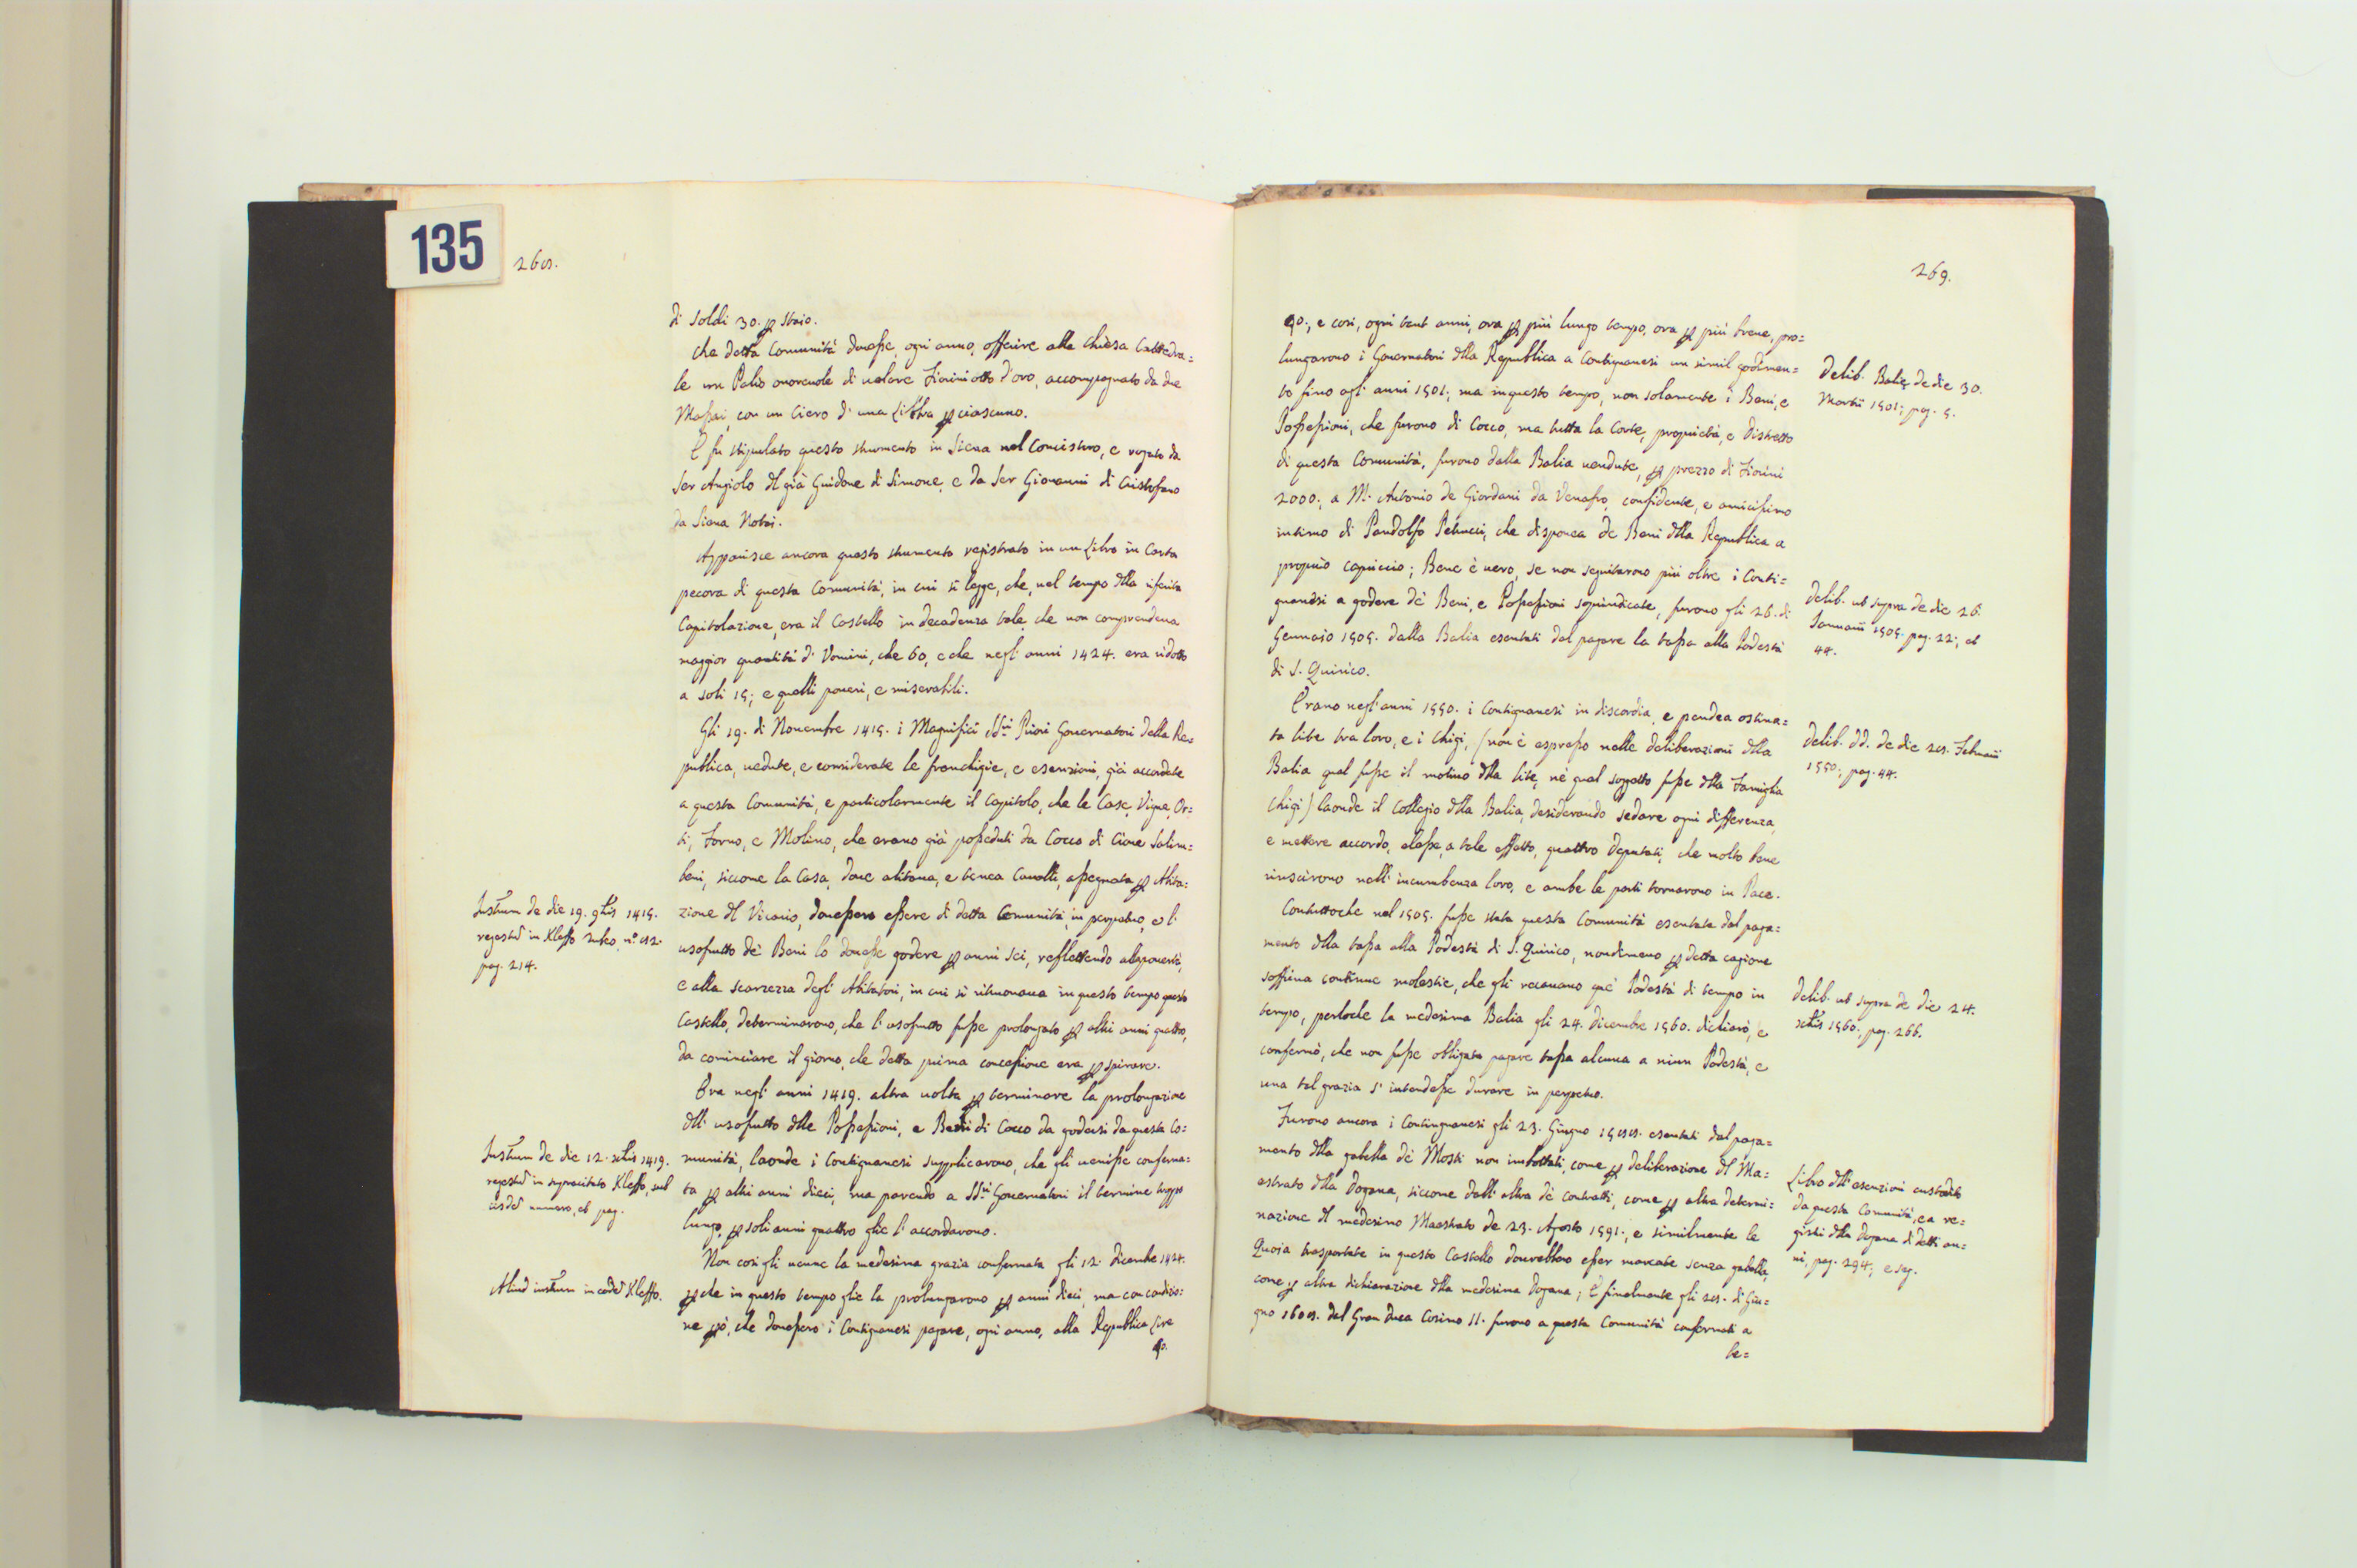 135
268.
di soldi 30. per staio.
Che detta Comunità douesse, ogni anno, offerire alla Chiesa Cattedra=
le un Palio onoreuole di ualore Fiorini otto d'oro, accompagnato da due
Massai, con un Ciero di una Libbra per ciascuno.
E fu stipulato questo strumento in Siena nel Concistoro, e rogato da
Ser Angiolo del già Guidone di Simone, e da Ser Giouanni di Cristofano
da Siena Notai.
Apparisce ancora questo strumento registrato in un Libro in Carta
pecora di questa Comunità, in cui si legge, che, nel tempo della riferita
Capitolazione, era il Castello in decadenza tale, che non comprendeua
maggior quantità di Uomini, che 60, e che negl' anni 1424. era ridotto
a soli 15; e quelli poueri, e miserabili.
Gli 19. di Nouembre 1415. i Magnifici SSri Priori Gouernatori della Re=
publica, uedute, e considerate le franchigie, e esenzioni, già accordate
a questa Comunità, e particolarmente il Capitolo, che le Case, Vigne, Or=
ti, Forno, e Molino, che erano già posseduti da Cocco di Cione Salim=
beni, siccome la Casa, doue abitaua, e tenea Caualli, assegnata per Abita=
zione del Vicario, douessero essere di detta Comunità in perpetuo, e l'
usofrutto de' Beni lo douesse godere per anni sei, reflettendo alla pouertà,
e alla scarzezza degl' Abitatori, in cui si ritrouaua in questo tempo questo
Castello, determinarono, che l' usofrutto fusse prolongato per altri anni quattro,
da cominciare il giorno, che detta prima concessione era per spirare.
Era negl' anni 1419. altra uolta per terminare la prolongazione
dell' usofrutto delle Possessioni, e Beni di Cocco da godersi da questa Co=
munità, laonde i Contignanesi supplicarono, che gli uenisse conferma=
ta per altri anni dieci, ma parendo a SSri Gouernatori il termine troppo
lungo, per soli anni quattro glie l' accordarono.
Non così gli uenne la medesima grazia confermata gli 12. Dicembre 1424.
perche in questo tempo glie la prolungarono per anni dieci, ma con condizio=
ne però, che douessero i Contignanesi pagare, ogni anno, alla Republica Lire
40.
Instrum de die 19. 9bris 1415.
regestrd in Kleffo no 82.
pag. 214.
Instrum de die 12. xbris 1419.
regestrd in supracitato Kleffo, sub
eisdem numero, et pag.
Aliud instrum in eodem Kleffo.
269.
40:, e così, ogni tant' anni, ora per più lungo tempo, ora per più breue, pro=
lungarono i Gouernatori della Republica a Contignanesi un simil godimen=
to fino agl' anni 1501:, ma in questo tempo, non solamente i Beni, e
Possessioni, che furono di Cocco, ma tutta la Corte, proprietà, e Distretto
di questa Comunità, furono dalla Balia uendute, per prezzo di Fiorini
2000:, a M. Antonio de Giordani da Venafro, confidente, e amicissimo
intimo di Pandolfo Petrucci, che disponea de Beni della Republica a
proprio capriccio; Bene è uero, se non seguitarono più oltre i Conti=
gnanesi a godere de' Beni, e Possessioni soprindicate, furono gli 26. di
Gennaio 1505. dalla Balia esentati dal pagare la tassa alla Podestà
di S. Quirico.
Erano negl' anni 1550. i Contignanesi in discordia, e pendea ostina=
ta lite tra loro, e i Chigi, (non è espresso nelle deliberazioni della
Balia qual fusse il motiuo della lite, nè qual soggetto fusse della Famiglia
Chigi) laonde il Collegio della Balia, desiderando sedare ogni differenza,
e mettere accordo, elesse, a tale effetto, quattro Deputati, che molto bene
riuscirono nell' incumbenza loro, e ambe le parti tornarono in Pace.
Contuttoche nel 1505. fusse stata questa Comunità esentata dal paga=
mento della tassa alla Podestà di S. Quirico, nondimeno per detta cagione
soffriua continue molestie, che gli recauano que' Podestà di tempo in
tempo, perloche la medesima Balia gli 24. Dicembre 1560. dichiarò, e
confermò, che non fusse obligata pagare tassa alcuna a niun Podestà, e
una tal grazia s' intendesse durare in perpetuo.
Furono ancora i Contingnanesi gli 23. Giugno 1588. esentati dal paga=
mento della gabella de' Mosti non imbottati, come per deliberazione del Ma=
estrato della Dogana, siccome dall' altra de' contratti, come per altra determi=
nazione del medesimo Maestrato de 23. Agosto 1591., e similmente le
Quoja trasportate in questo Castello dourebbero esser marcate senza gabella,
come per altra dichiarazione della medesima Dogana; E finalmente gli 28. di Giu=
gno 1608. dal Gran Duca Cosimo II. furono a questa Comunità confermati a
be=
Delib. Balię de die 30.
Martii 1501; pag. 5.
Delib. ut supra de die 26.
Januarii 1505. pag. 22:, et
44.
Delib. dd. de die 28. Februarii
1550:, pag. 44.
Delib. ut supra de die 24.
xbris 1560:, pag. 266.
Libro dell' esenzioni custodito
da questa Comunità, e a re=
gistri della Dogana di detti an=
ni, pag. 294:, e seg.